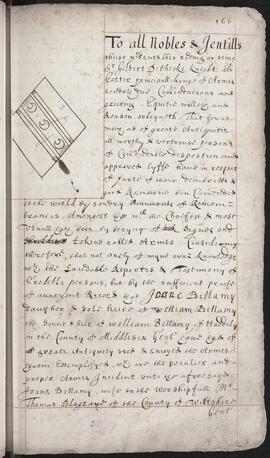 166
To all Nobles & Jentills
these presentes reding or seing
Sr Gilbert Dethecke Knight als
Gartier principall King of Armes
sendeth due Comendations and
greting. Equitie willeth and
Reason
many as of greate Antiquitie
all worthy & vertuouse persons
of Comendable desposition and
approved lyffe have in respect
of parte of their
ben Comended
to the world by sundry Monuments of Remem-
brances Amongest wch the Chiefest & most
Usuall hath been by beryng of Signes and
tokens called Armes Considering
therefore that not only of myne owne Knowledge
wth the Laudable Reportes & Testimony of
Credible persons, but by the sufficient profe
of auncyent Records was Joane Bellamy
daughter & sole heire of William Bellamy
the sonne & heir of William Bellamy of Hadley
in the County of Middlesex Gent
of greate Antiquity used & enioyed the Armes
Exemplefyed, wch are the peculier and
proper Armes Incident unto ye aforesayd
Joane Bellamy, wife to the worshipfull Mr
Thomas Blagrave of the County of Wiltshire
Gent